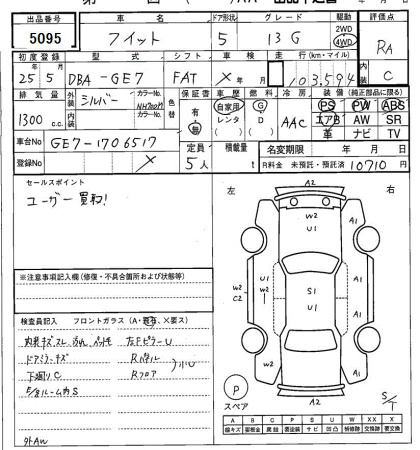 出品番号 車名 ドア形状 グレード 駆動 評価点
5095 フィット 5 13G 2WD 4WD RA
初度登録 型式 シフト 車検 走行(km・マイル) 内装
25年5月 DBA-GE7 FAT ×年月 103,594 C
排気量 外装 シルバー カラーNo. NH700M 色替 保証書 車歴 燃料 冷房 装備(純正部品に限る)
1300 c.c. 内装 カラーNo. 有・無 自家用 レンタ G D AAC PS PW ABS
エアB AW SR
革 ナビ TV
車台No GE7-1706517 定員 積載量 名変期限 年 月 日
登録No × 5人 t R料金 未預託・預託済 10710円
セールスポイント
ユーザー買取!
左 右
A2
W2
U1
A1
U1
W2
W2
C2
W2
S1
U1
A1
A1
A1
A2
P
スペア
S/T
※注意事項記入欄(修復・不具合箇所および状態等)
検査員記入 フロントガラス(A・飛石・X要ス)
内装キズスレ 汚れ
ドアミラーキズ Rパネル
下廻りC Rフロア 小U
外AW
A B C P S U W X XX